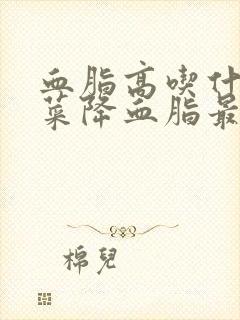 血脂高喫什
菜降血脂最
棉兒